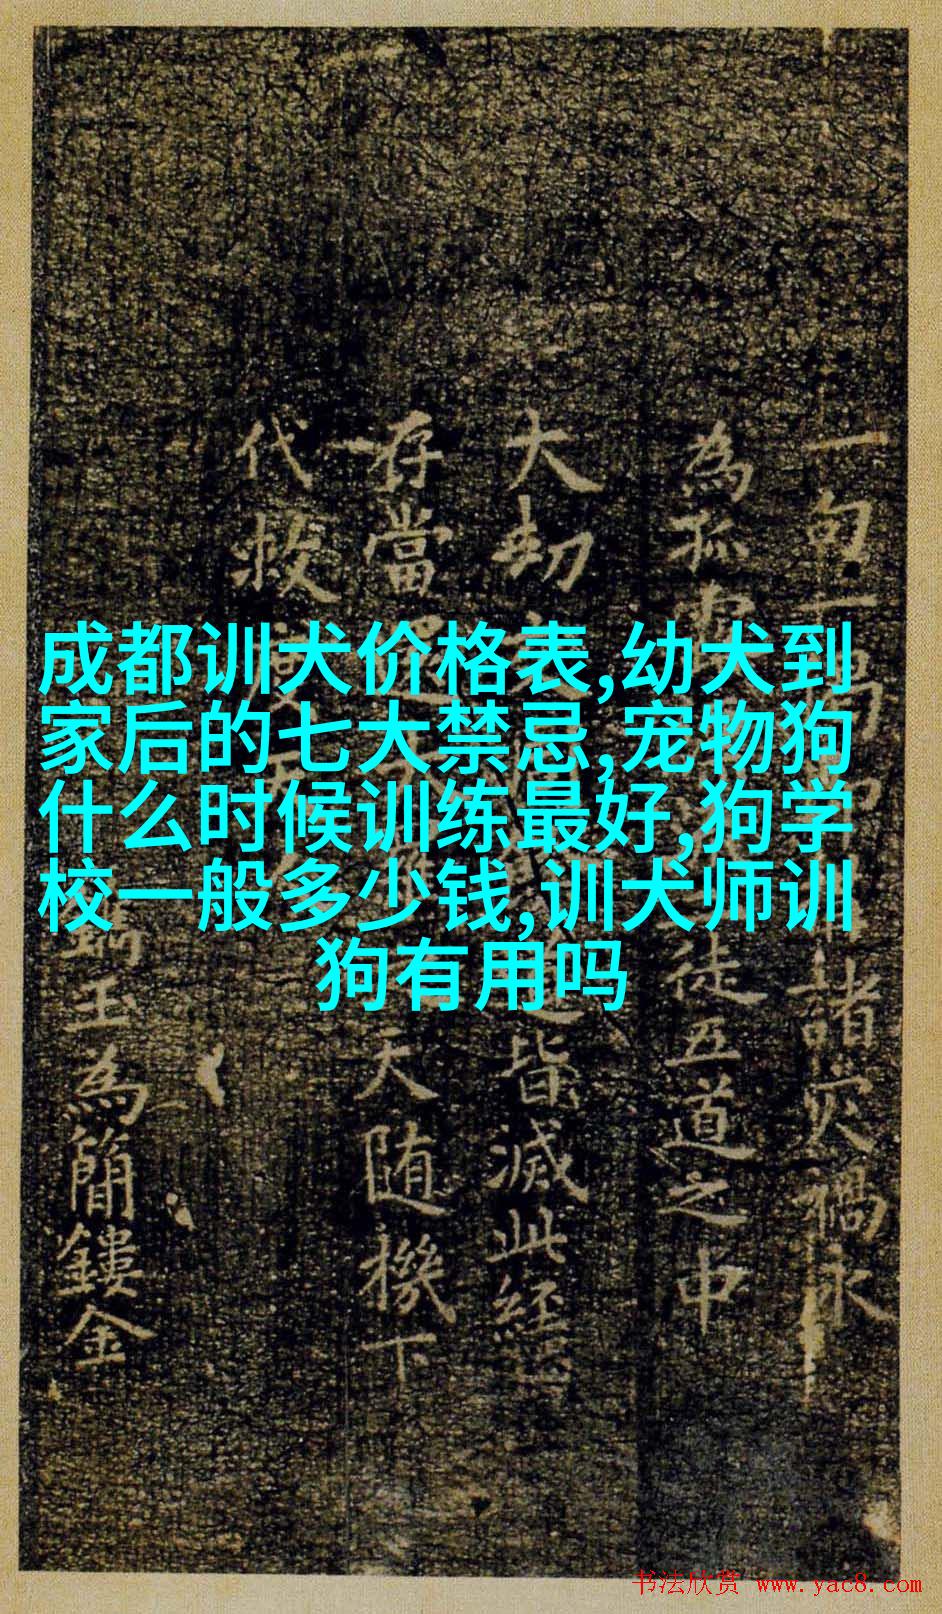 成都训犬价格表,幼犬到
家后的七大禁忌,宠物狗
什么时候训练最好,狗学
校一般多少钱,训犬师训
狗有用吗
一句一
諸灾禍永
為孤
徒五道之中
大劫
皆滅此經
存當
天随機下
代
玉為簡鏤金
书法欣赏 www.yac8.com